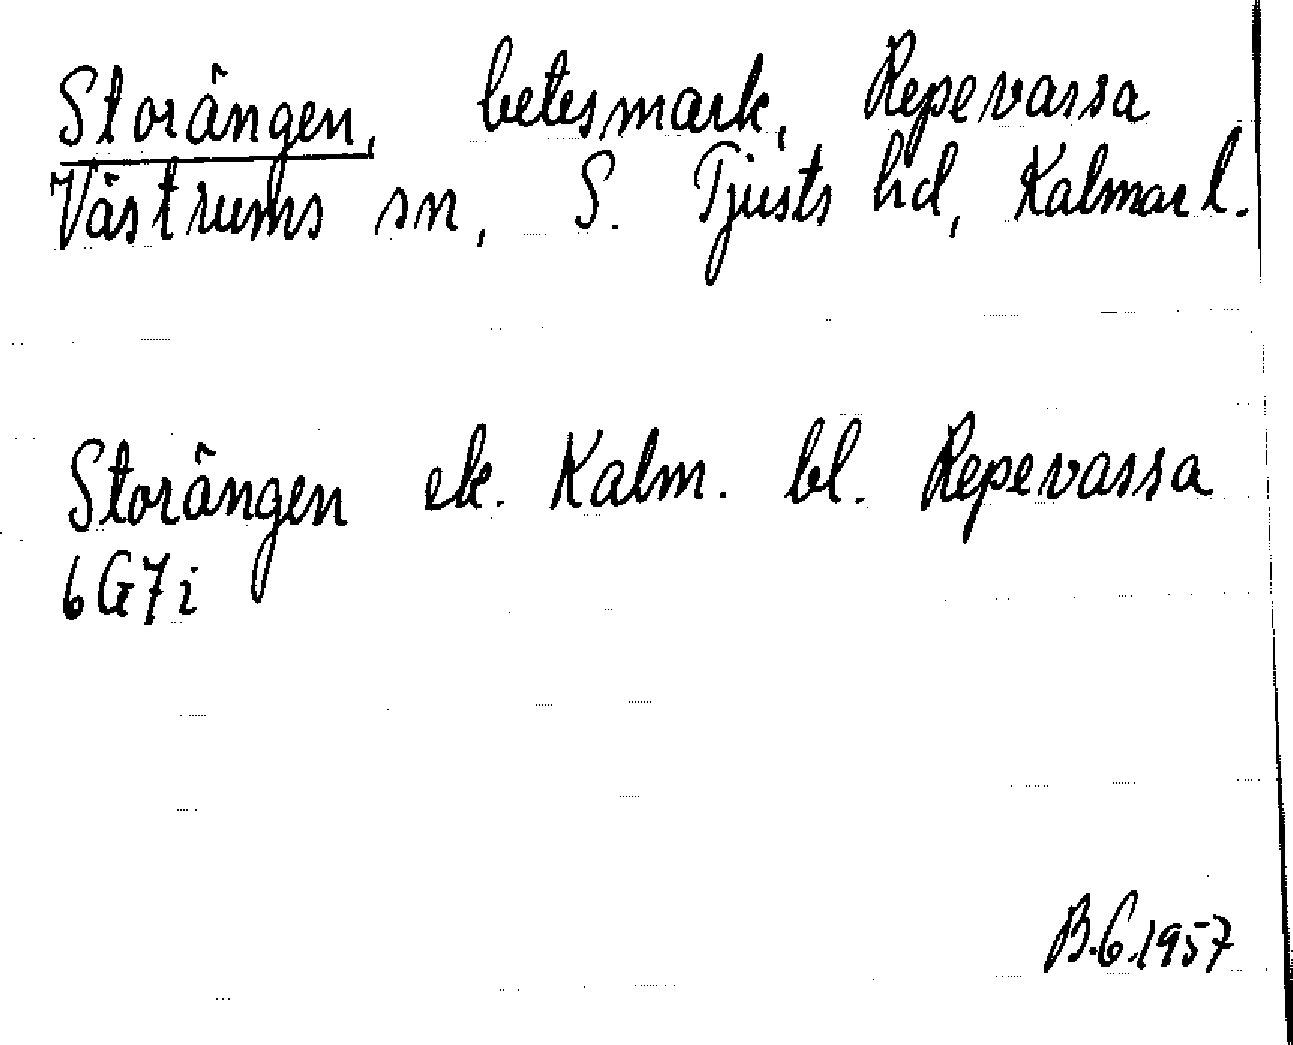 Storängen, betesmark, Repevassa
Västrums sn, S. Tjusts hd, Kalmar l.
Storängen ek. Kalm. bl. Repevassa
6G7i
B.G.1957